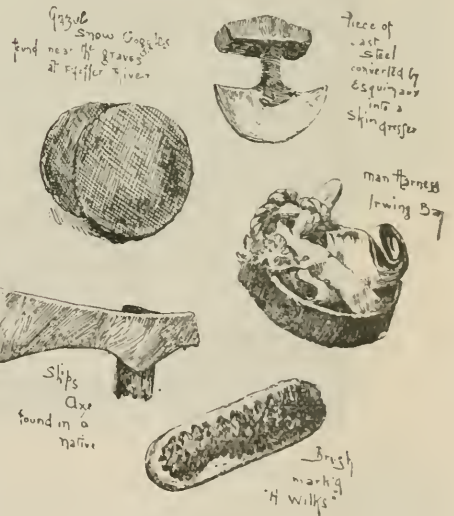 Snow Goggles
found near the graves
at Pfeffer River
Piece of
cast
Steel
converted by
Esquimaux
into a
Skin dresser
man Harness
Irwing Bay
Ships
Axe
found in a
native
Brush
mark'd
"H Wilks"